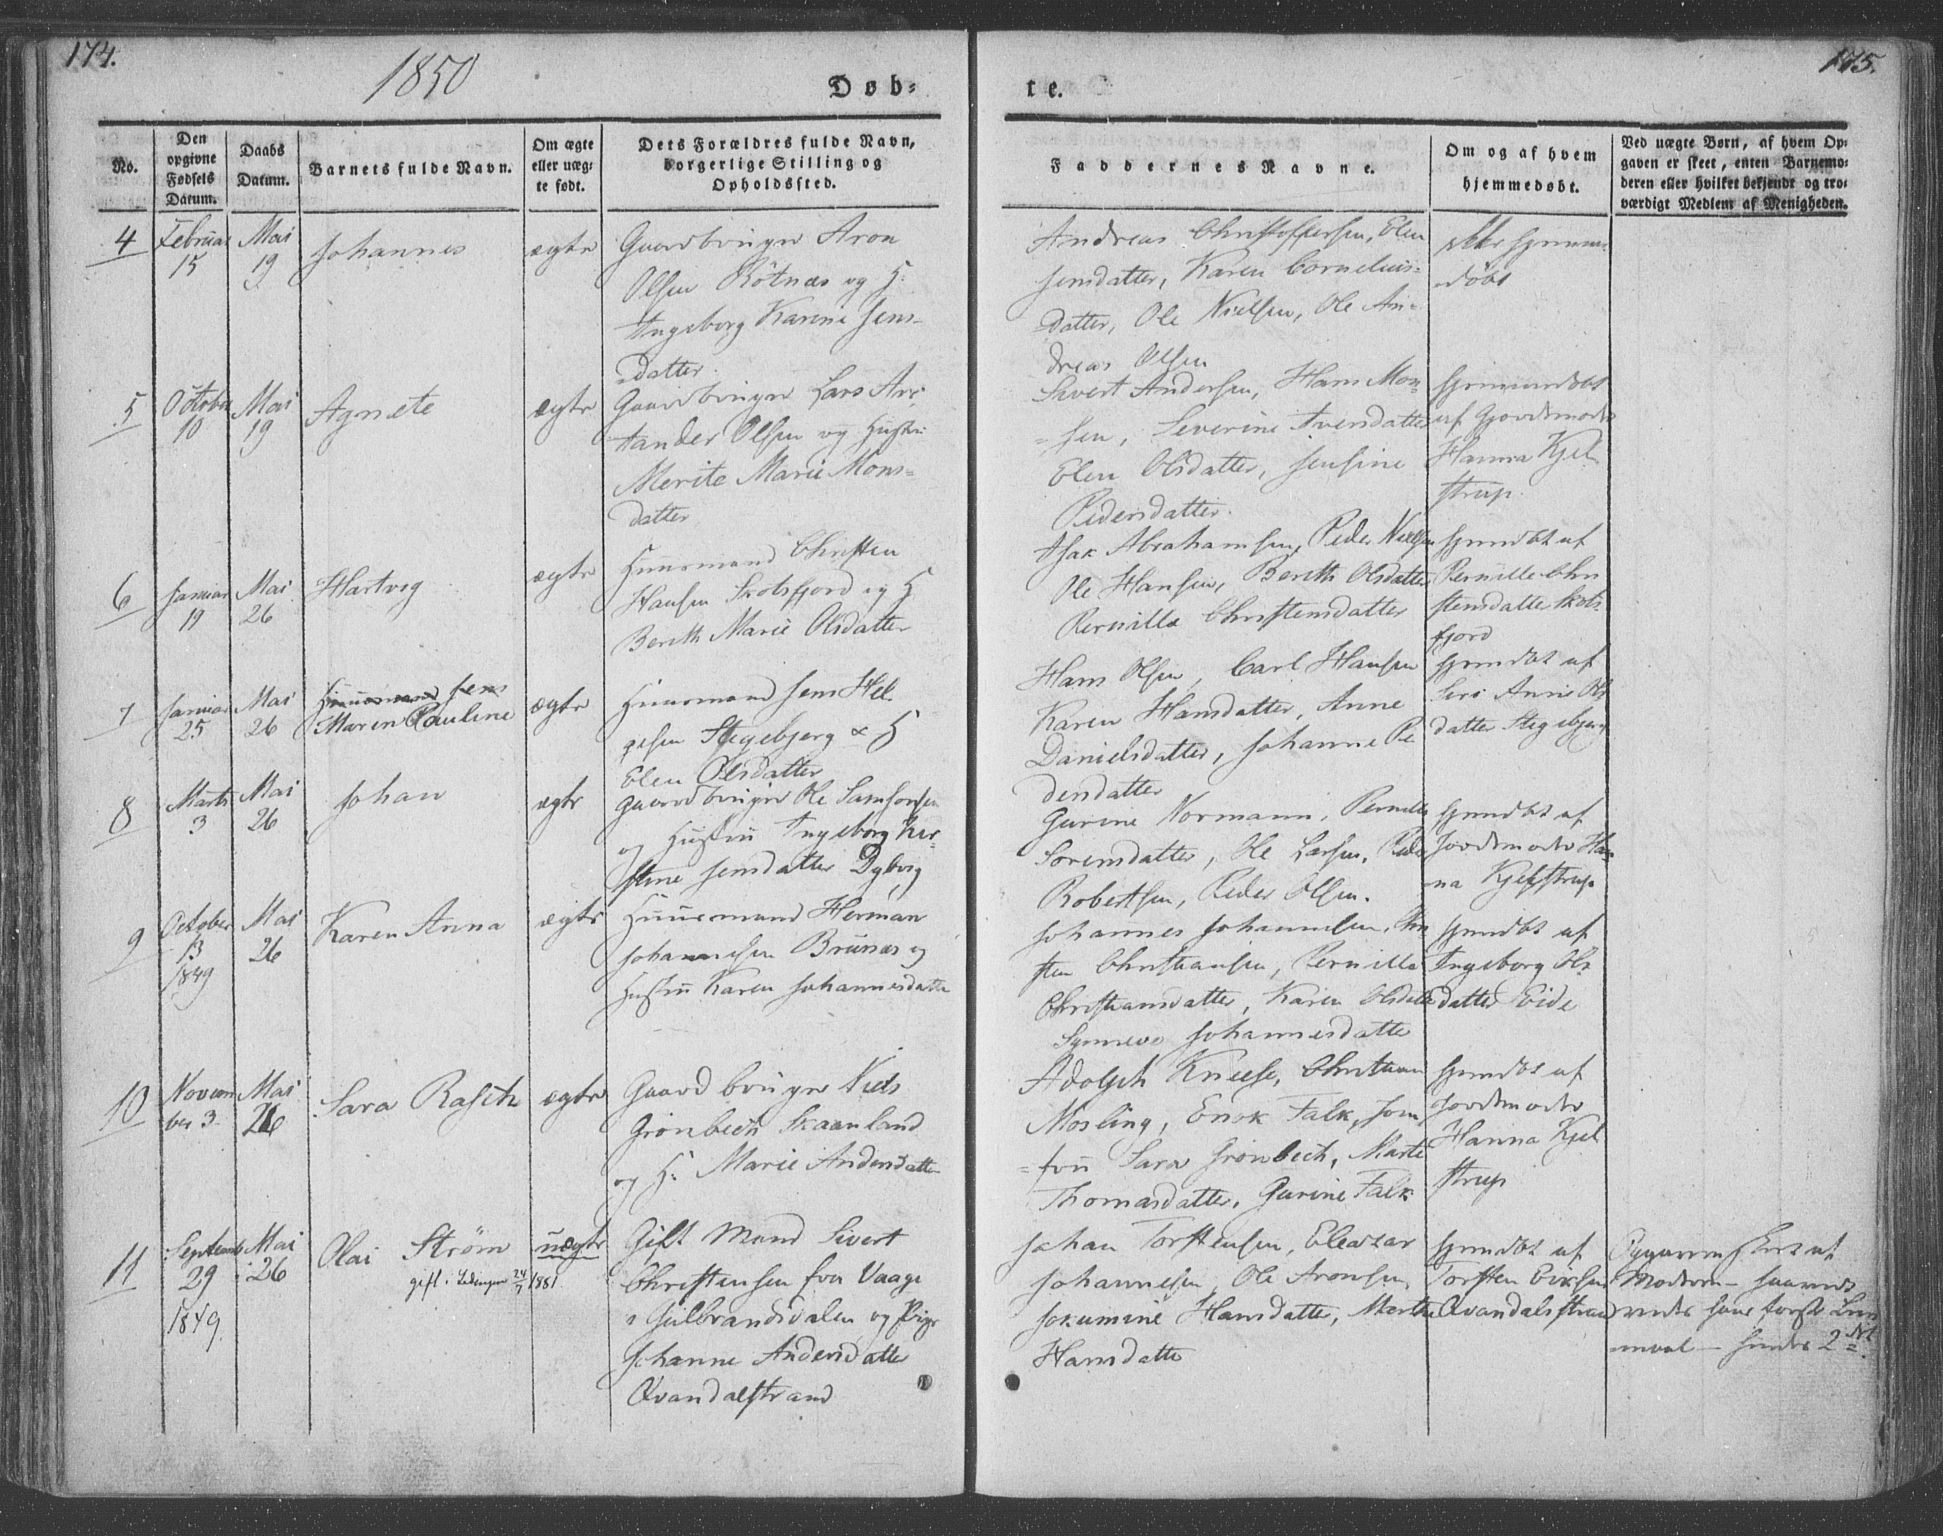 174.
1850
Døb-
te.
175.
No.
Den
opgivne
Fødsels
Datum.
Daabs
Datum.
Barnets fulde Navn.
Om ægte
eller uæg-
te født.
Dets Forældres fulde Navn,
borgerlige Stilling og
Opholdssted.
Faddernes Navne.
Om og af hvem
hjemmedøbt.
Ved uægte Børn, af hvem Op-
gaven er skeet, enten Barnemo-
deren eller hvilket bekjendt og tro-
værdigt Medlem af Menigheden.
4
Februar
15
Mai
19
Johannes
ægte
Gaardbruger Aron
Olsen Rötnæs og H.
Ingeborg Karine Jens-
datter.
Andreas Christoffersen, Elen
Jensdatter, Karen Cornelius-
datter, Ole Nielsen, Ole An-
dreas Olsen
ikke hjemme-
döbt
5
October
10
Mai
19
Agnete
ægte
Gaardbruger Lars
Olsen og Hustru
Merite Marie Mons-
datter
Sivert Andersen, Hans Mon-
sen, Severine Iversdatter
Elen Olsdatter, Jensine
Pedersdatter.
hjemmedöbt
af Gjordemoder
Hanna Kjel
strup.
6
Januar
19
Mai
26
Hartvig
ægte
Huusmand Christen
Hansen Skotsfjord og H
Bereth Marie Olsdatter
Isak Abrahamsen, Peder Nielsen
Ole Hansen, Bereth Olsdatter
Pernille Christensdatter
hjmdöbt af
Pernille Chri
stensdatter Skots
fjord
7
Januar
25
Mai
26
Huusmand Jens
Maren Pauline
ægte
Huusmand Jens Hel
gesen Stegebjerg & H
Elen Olsdatter
Hans Olsen, Carl Hansen
Karen Hansdatter, Anne
Danielsdatter, Johanne Pe
dersdatter
hjmdöbt af
Anne Ols
datter Stegebjerg
8
Marts
3
Mai
26
Johan
ægte
Gaardbruger Ole Samsonsen
og Hustru Ingeborg Kir-
stine Jensdatter Dybvig
Gurine Normann, Pernille
Sorensdatter, Ole Larsen, Peder
Robertsen, Peder Olsen.
hjmdöbt af
Jordemoder Han
na Kjelstrup
9
October
13
1849
Mai
26
Karen Anna
ægte
Huusmand Herman
Johannesen Brunæs og
Hustru Karen Johannesdatter
Johannes Johannesen,
sten Christiansen, Pernille
Christiansdatter, Karen Olsdatter
Synneve Johannesdatter
hjmdöbt af
Ingeborg Ols
datter Eide
10
Novem
ber 3
Mai
26
Sara Rasch
ægte
Gaardbruger Niels
Grönbech Skaanland
og H. Marie Andersdatter
Adolph Kneese, Christian
Mosling, Enok Falk, Jom
fru Sara Grönbech, Marte
Thomasdatter, Gurine Falk
hjmdöbt af
Jordemoder
Hanna Kjel
strup
11
Septemb
29
1849.
Mai
26
Olai Ström
gift i Lödingen 24/7 1881
uægte
Gift Mand Sivert
Christensen fra Vaage
i Gulbrandsdalen og Pige
Johanne Andersdatter
Qvandalstrand
Johan Torstensen, Eleazar
Johannesen, Ole Aronsen,
Jokumine Hansdatter, Marthe
Hansdatter
hjmdöbt af
Torsten Eriksen
Qvandalstrand
Opgaven skeet af
Moderen
hans første Leier
maal hendes 2det.